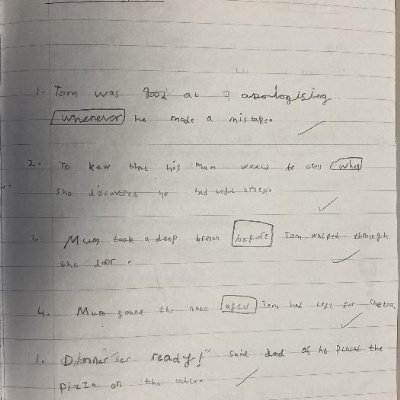 1. Tom was good at apologising
whenever he made a mistake
2. To knew that his Mum would be when
she discovered he had
3. Mum took a deep breath before Tom walked through
the door.
4. Mum found the note after Tom had left for
1. Dinner is ready!" said dad as he placed the
pizza on the table